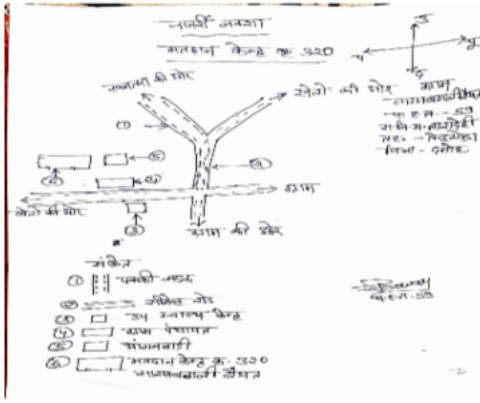 नजरी नक्शा
मतदान केन्द्र क्र. 320
उ
पू
प
द
की ओर
खेतों की ओर
ग्राम
प.ह.न. - 59
जिला - दमोह
①
②
⑤
⑥
④
ग्राम
खेतों की ओर
③
ग्राम की ओर
संकेत
① पक्की सड़क
② सीमेंट रोड
③ उप स्वास्थ्य केन्द्र
④ ग्राम पंचायत
⑤ आंगनबाड़ी
⑥ मतदान केन्द्र क्र. 320
प.ह.न. 59